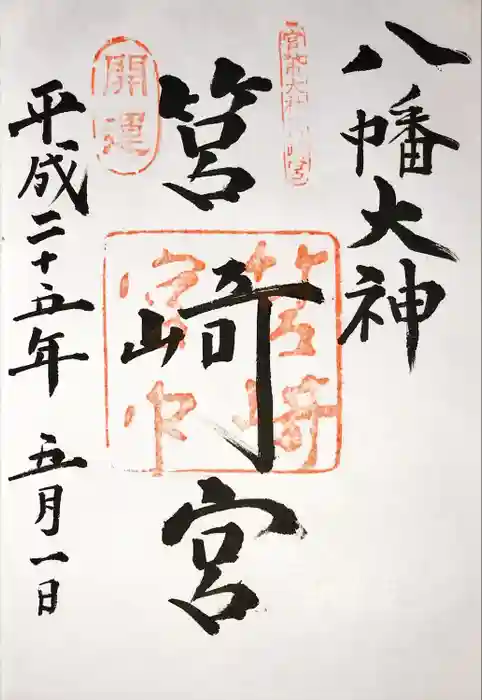 八幡大神
官幣大社筥崎宮
筥崎宮
筥崎
宮印
開運
平成二十五年 五月一日